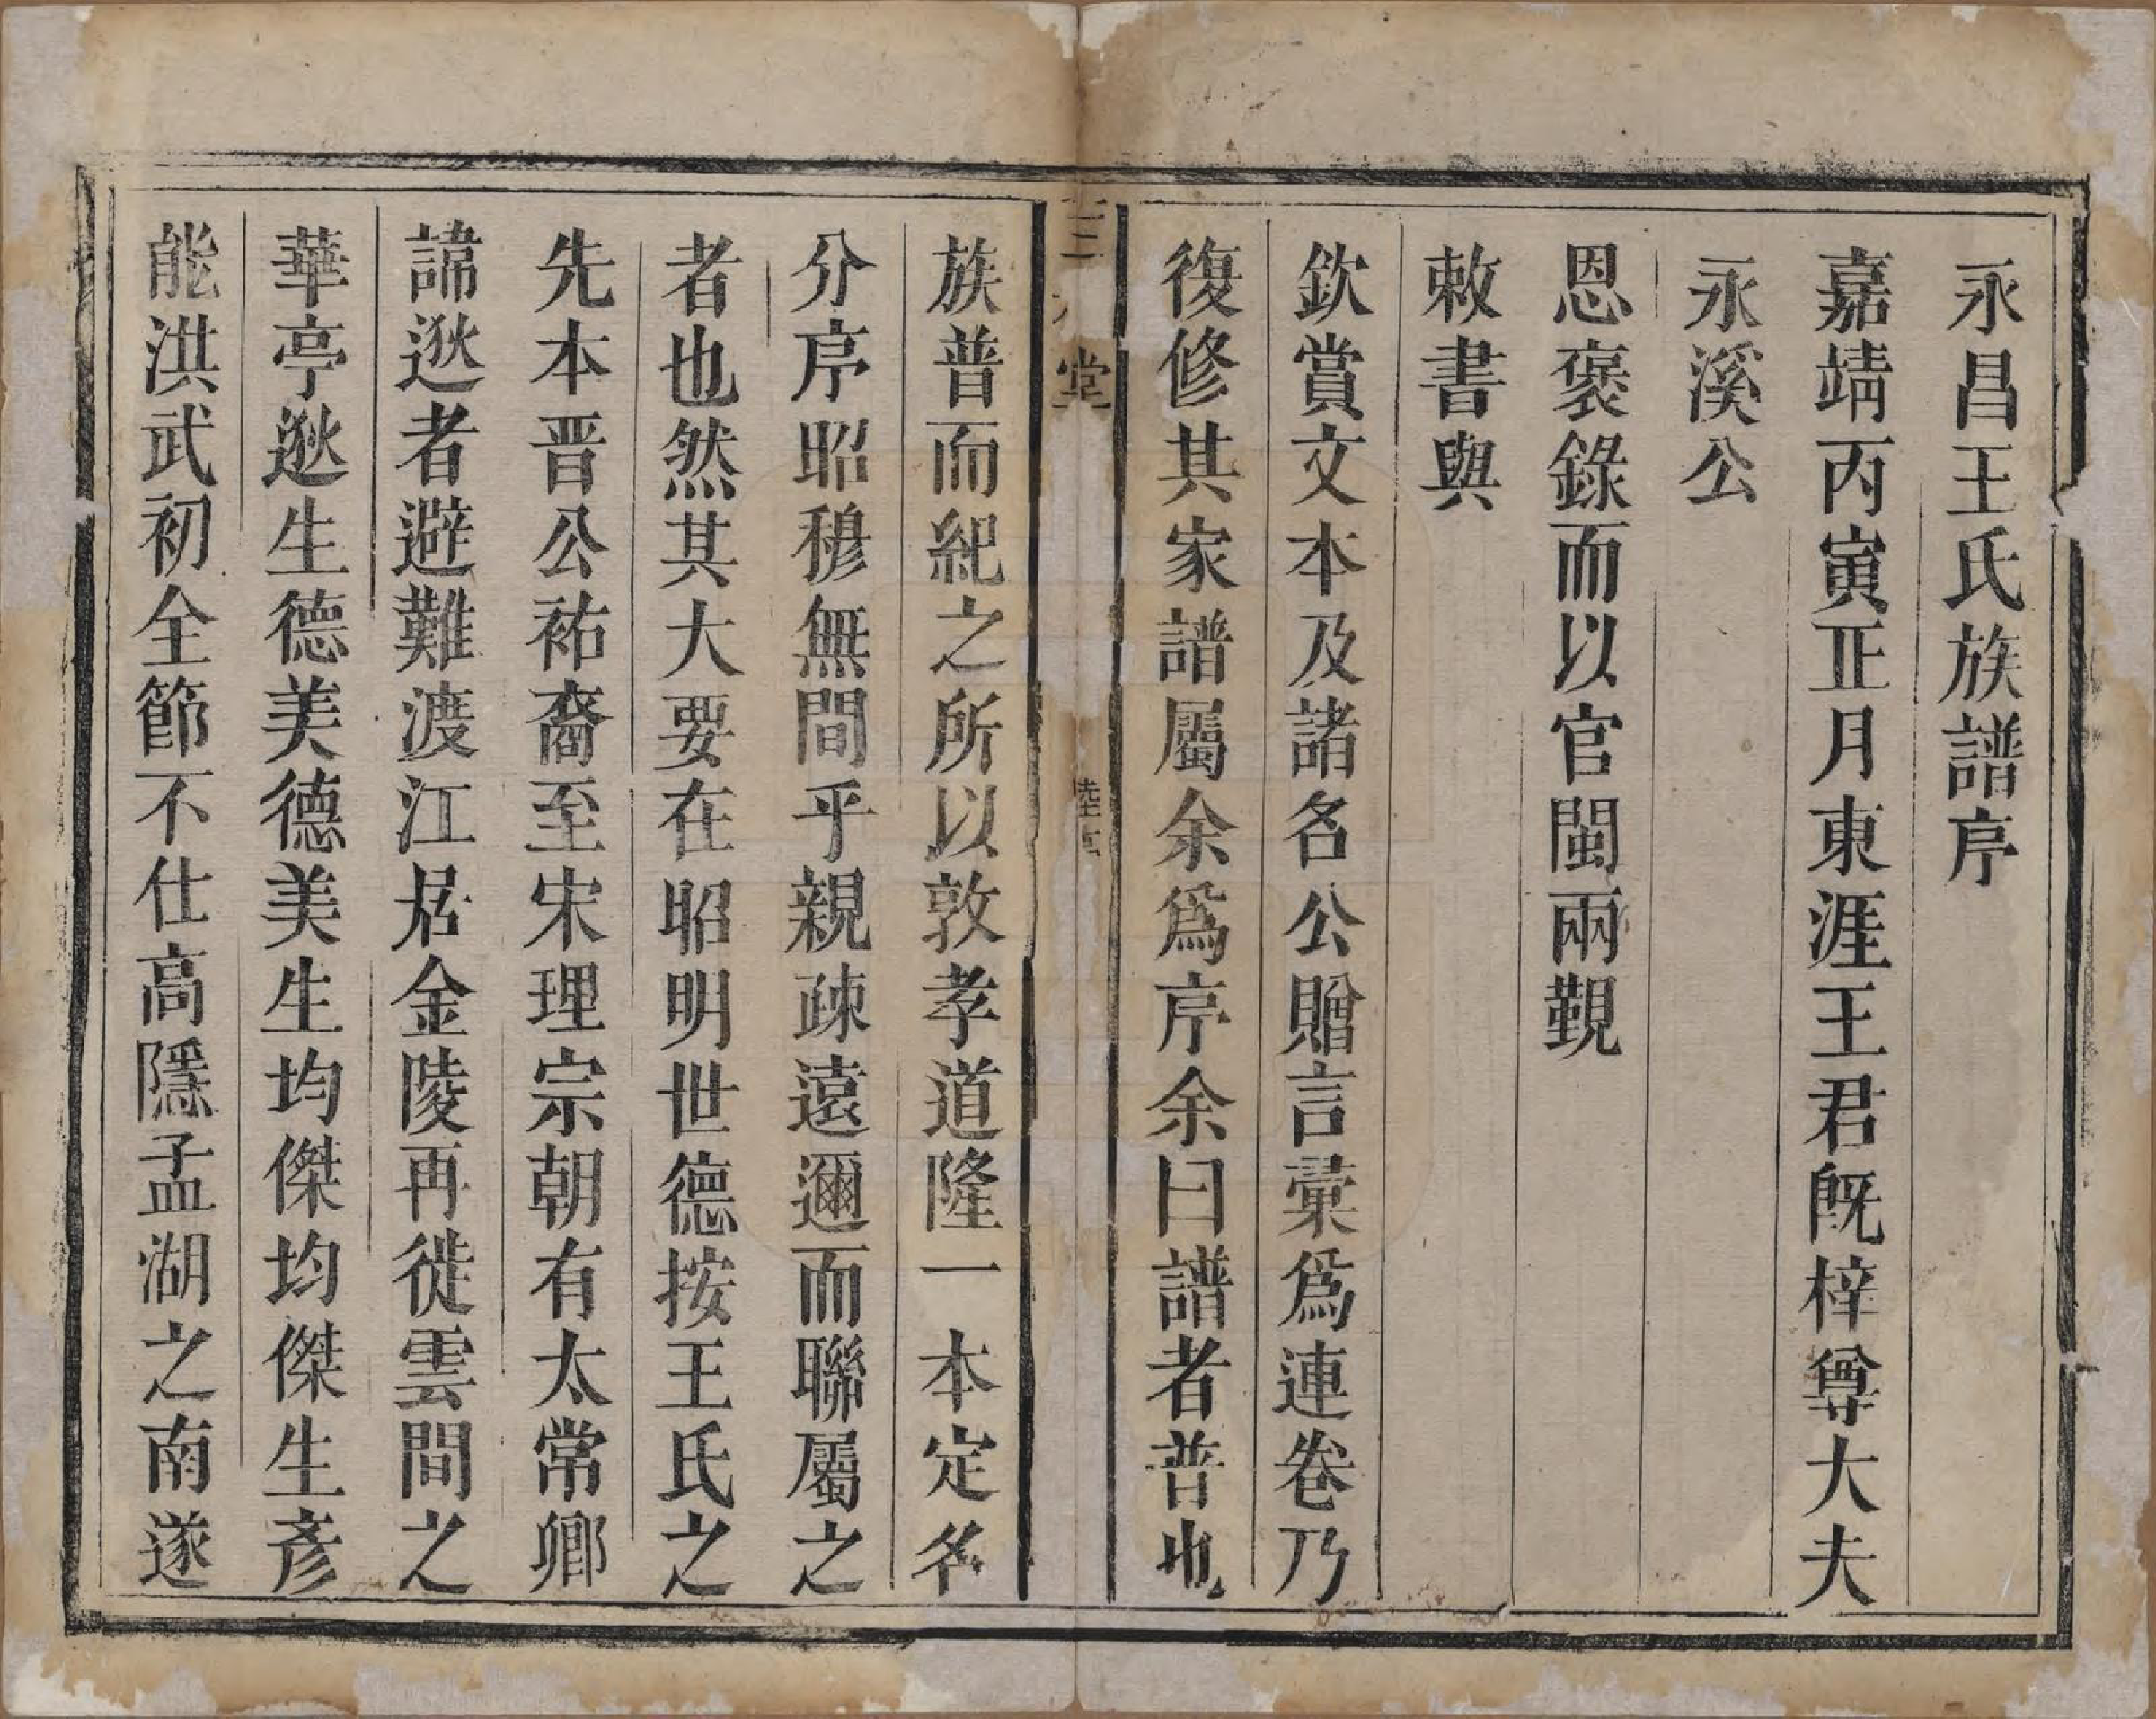 永昌王氏族譜序
嘉靖丙寅正月東涯王君既梓尊大夫
永溪公
恩褒錄而以官閩兩覲
敕書與
欽賞文本及諸名公贈言彙爲連卷乃
復修其家譜屬余爲序余曰譜者普也
三 堂
族普而紀之所以敦孝道隆一本定名
分序昭穆無間乎親疎遠邇而聯屬之
者也然其大要在昭明世德按王氏之
先本晋公祐裔至宋理宗朝有太常卿
諱逖者避難渡江居金陵再徙雲間之
華亭逖生德美德美生均傑均傑生彥
能洪武初全節不仕高隱孟湖之南遂